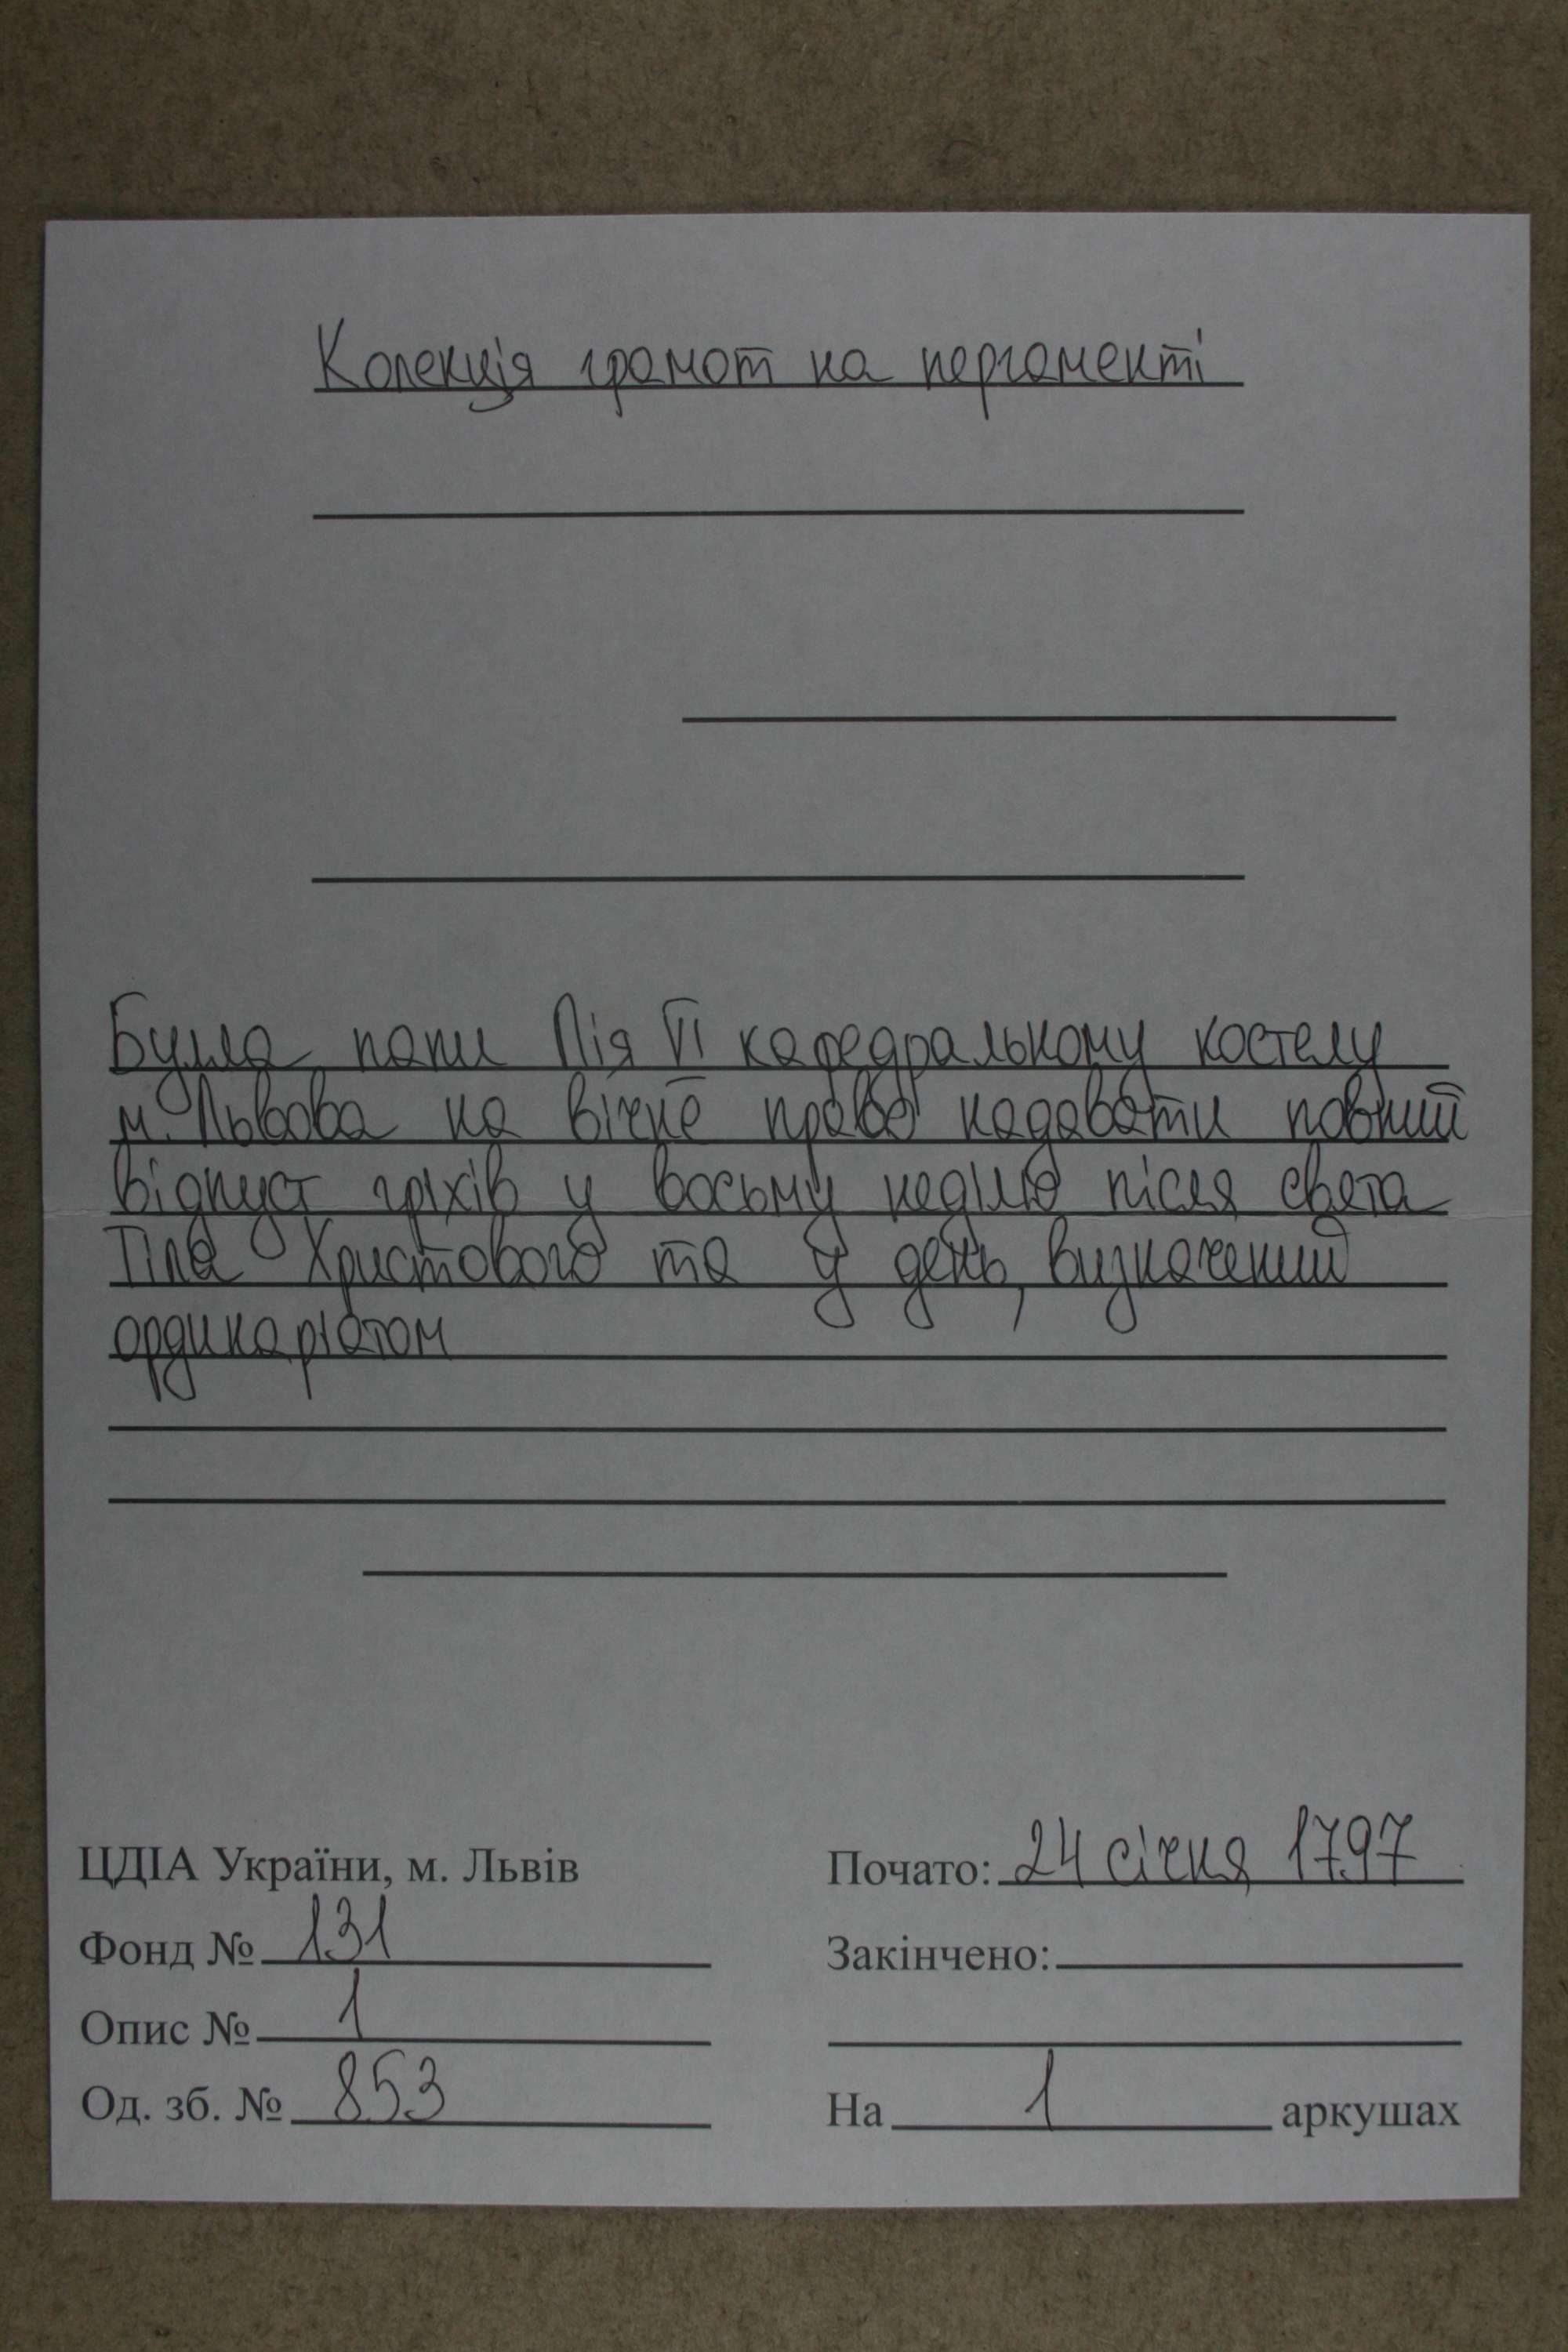 Колекція грамот на пергаменті
Булла папи Пія VI кафедральному костелу
м. Львова на вічне право надавати повний
відпуст гріхів у восьму неділю після свята
Тіла Христового та у день, визначений
ординаріатом
ЦДІА України, м. Львів
Почато: 24 січня 1797
Фонд № 131
Закінчено:
Опис № 1
Од. зб. № 853
На 1 аркушах